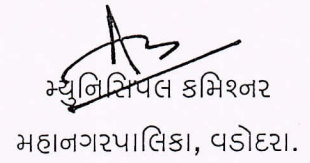 મ્યુનિસિપલ કમિશ્નર
મહાનગરપાલિકા, વડોદરા.